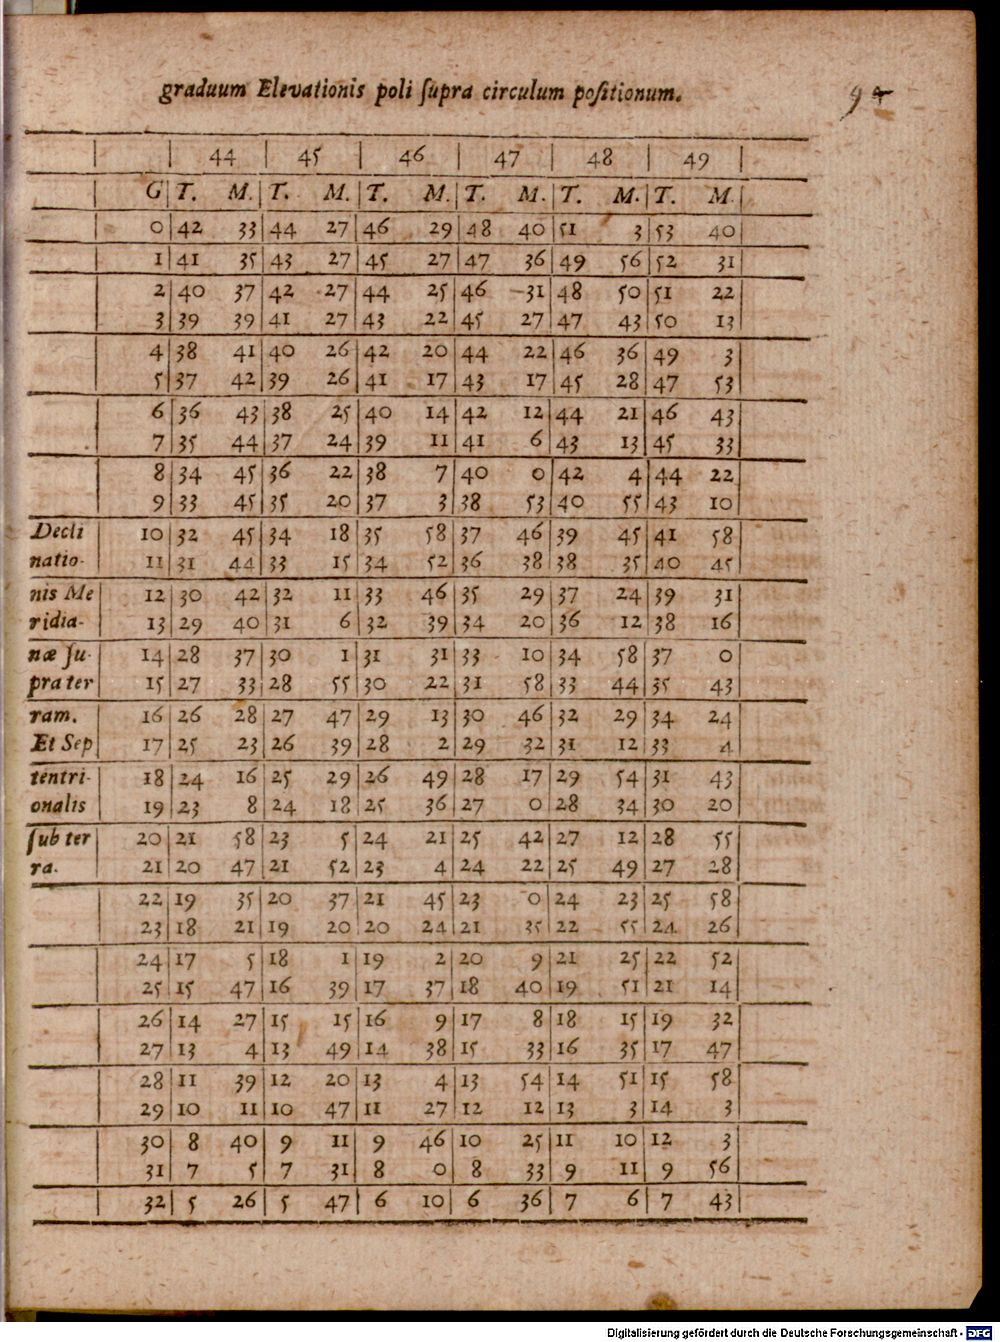 graduum Elevationis poli ſupra circulum poſitionum.
44 45 46 47 48 49
G T. M. T. M. T. M. T. M. T. M. T. M.
0 42 33 44 27 46 29 48 40 51 3 53 40
1 41 35 43 27 45 27 47 36 49 56 52 31
2 40 37 42 27 44 25 46 31 48 50 51 22
3 39 39 41 27 43 22 45 27 47 43 50 13
4 38 41 40 26 42 20 44 22 46 36 49 3
5 37 42 39 26 41 17 43 17 45 28 47 53
6 36 43 38 25 40 14 42 12 44 21 46 43
7 35 44 37 24 39 11 41 6 43 13 45 33
8 34 45 36 22 38 7 40 0 42 4 44 22
9 33 45 35 20 37 3 38 53 40 55 43 10
Decli 10 32 45 34 18 35 58 37 46 39 45 41 58
natio- 11 31 44 33 15 34 52 36 38 38 35 40 45
nis Me 12 30 42 32 11 33 46 35 29 37 24 39 31
ridia- 13 29 40 31 6 32 39 34 20 36 12 38 16
næ ſu- 14 28 37 30 1 31 31 33 10 34 58 37 0
pra ter 15 27 33 28 55 30 22 31 58 33 44 35 43
ram. 16 26 28 27 47 29 13 30 46 32 29 34 24
Et Sep 17 25 23 26 39 28 2 29 32 31 12 33 4
tentri- 18 24 16 25 29 26 49 28 17 29 54 31 43
onalis 19 23 8 24 18 25 36 27 0 28 34 30 20
ſub ter 20 21 58 23 5 24 21 25 42 27 12 28 55
ra. 21 20 47 21 52 23 4 24 22 25 49 27 28
22 19 35 20 37 21 45 23 0 24 23 25 58
23 18 21 19 20 20 24 21 35 22 55 24 26
24 17 5 18 1 19 2 20 9 21 25 22 52
25 15 47 16 39 17 37 18 40 19 51 21 14
26 14 27 15 15 16 9 17 8 18 15 19 32
27 13 4 13 49 14 38 15 33 16 35 17 47
28 11 39 12 20 13 4 13 54 14 51 15 58
29 10 11 10 47 11 27 12 12 13 3 14 3
30 8 40 9 11 9 46 10 25 11 10 12 3
31 7 5 7 31 8 0 8 33 9 11 9 56
32 5 26 5 47 6 10 6 36 7 6 7 43
Digitalisierung gefördert durch die Deutsche Forschungsgemeinschaft - DFG